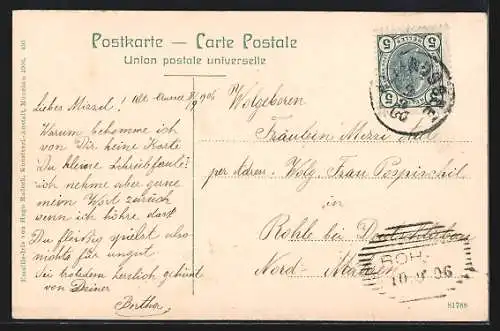 Postkarte — Carte Postale
Union postale universelle
Liebes Mizzel!
9/V 1906
Warum bekomme ich
von Dir keine Karte
Du kleine Schreibfaule?
ich nehme aber gerne
mein Wort zurück
wenn ich höhre daß
Du fleißig spielst also
nichts für ungut
Sei trotzdem herzlich geküßt
von Deiner
Bertha
Wolgeboren
Fräulein Mizzi
per Adres. Wolg. Frau Pospischil
in
Rohle bei
Nord-Mähren
5 5
5 5
ROH
10 V 06
Emaille-Bild von Hugo Kunstverl.-Anstalt, München 1906. 430
81788